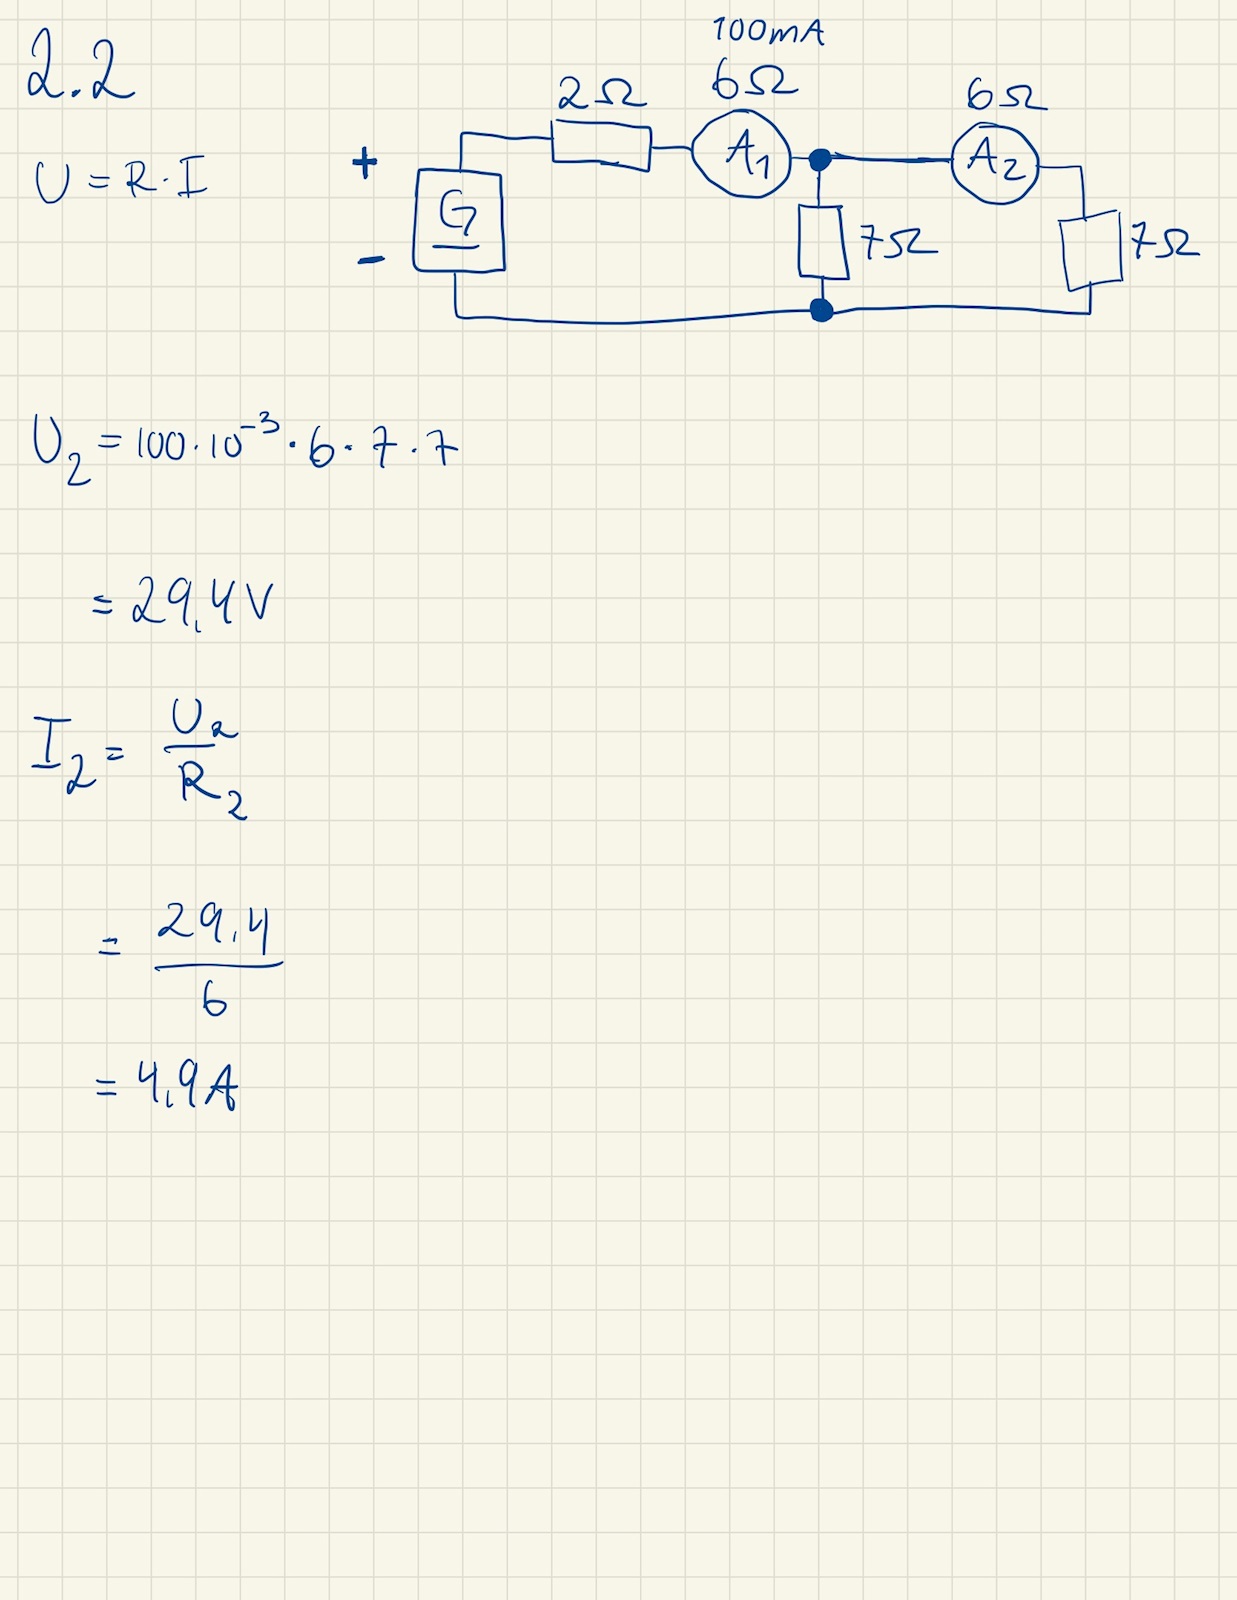 2.2
100mA
2Ω 6Ω 6Ω
+ G A1 A2
U = R·I
- 7Ω 7Ω
U2 = 100·10^-3·6·7·7
= 29,4V
I2 = U2/R2
= 29,4/6
= 4,9A